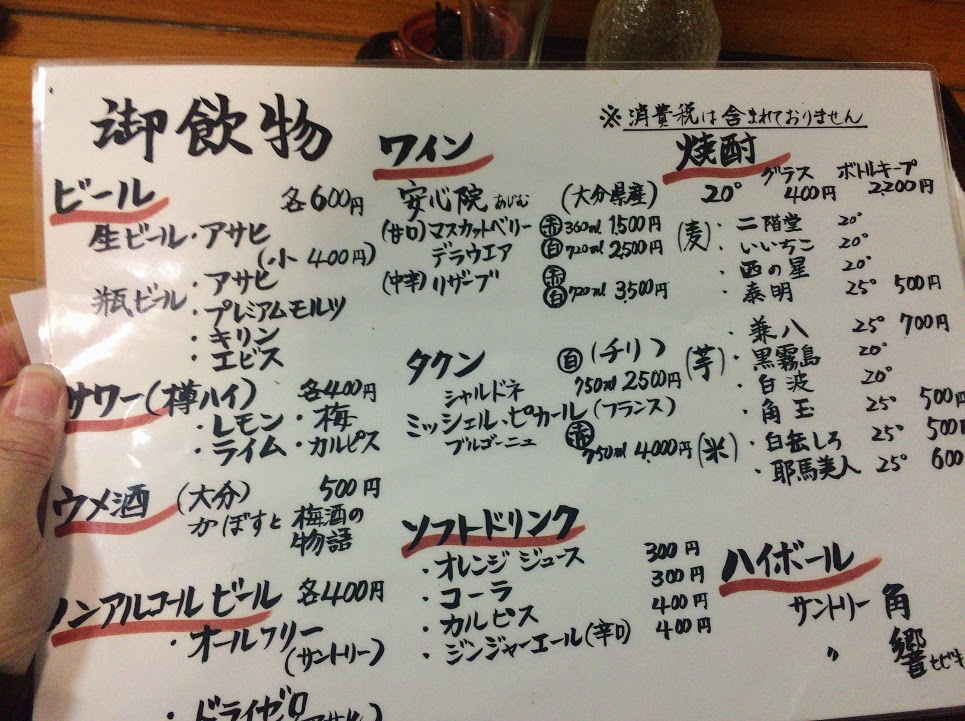 御飲物
ビール 各600円
生ビール・アサヒ
(小 400円)
瓶ビール・アサヒ
・プレミアムモルツ
・キリン
・エビス
サワー(樽ハイ) 各400円
・レモン・梅
・ライム・カルピス
ウメ酒(大分) 500円
かぼすと梅酒の物語
ノンアルコールビール 各400円
・オールフリー
(サントリー)
・ドライゼロ
ワイン
安心院 あじむ (大分県産)
(甘口)マスカットベリー 赤 360ml 1,500円
デラウエア 白 720ml 2,500円
(中辛)リザーブ 赤白 720ml 3,500円
タクン 白 (チリ)
シャルドネ 750ml 2500円
ミッシェル・ピカール (フランス)
ブルゴーニュ 赤 750ml 4,000円
ソフトドリンク
・オレンジジュース 300円
・コーラ 300円
・カルピス 400円
・ジンジャーエール(辛口) 400円
※消費税は含まれておりません
焼酎 グラス ボトルキープ
20° 400円 2,200円
(麦)・二階堂 20°
・いいちこ 20°
・西の星 20°
・泰明 25° 500円
・兼八 25° 700円
(芋)・黒霧島 20°
・白波 20°
・角玉 25° 500円
(米)・白岳しろ 25° 500
・耶馬美人 25° 600
ハイボール
サントリー 角
〃 響 ヒビキ